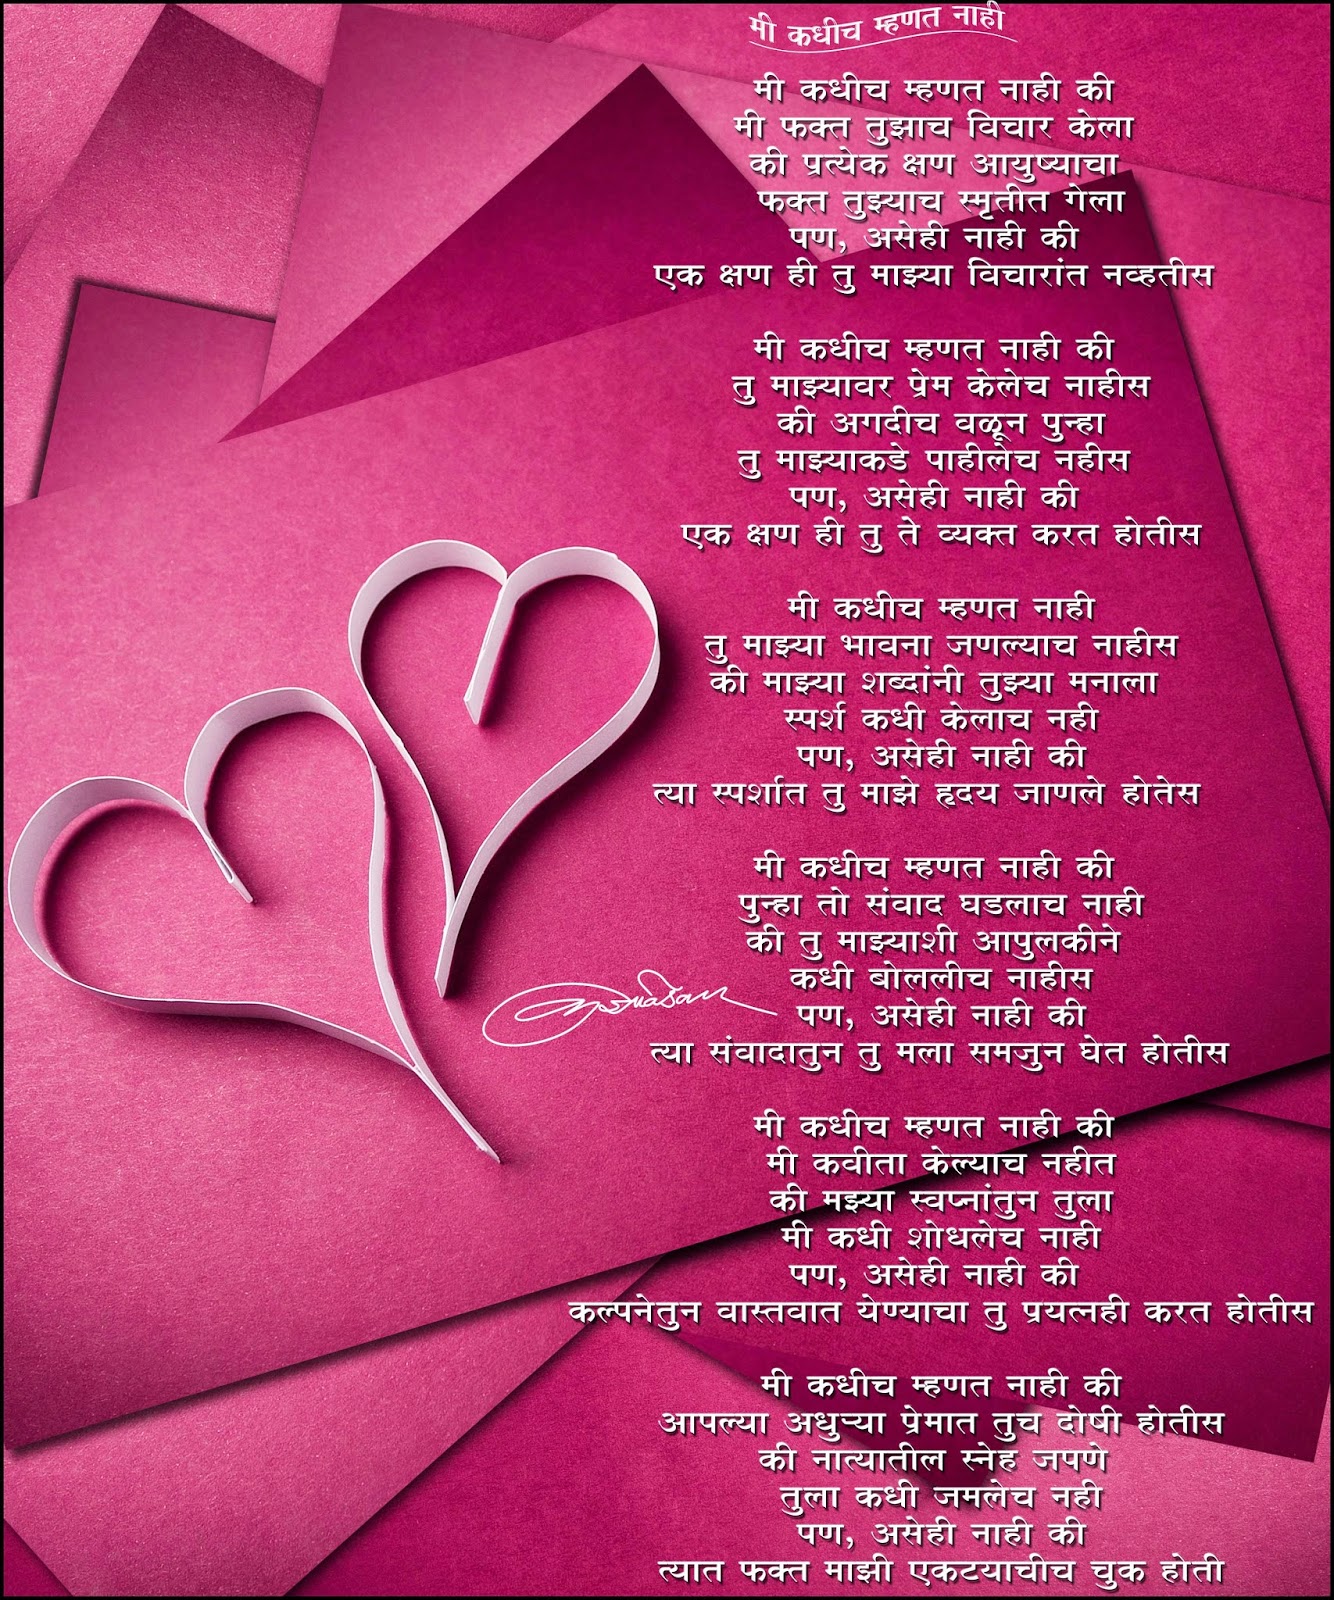 मी कधीच म्हणत नाही
मी कधीच म्हणत नाही की
मी फक्त तुझाच विचार केला
की प्रत्येक क्षण आयुष्याचा
फक्त तुझ्याच स्मृतीत गेला
पण, असेही नाही की
एक क्षण ही तु माझ्या विचारांत नव्हतीस
मी कधीच म्हणत नाही की
तु माझ्यावर प्रेम केलेच नाहीस
की अगदीच वळून पुन्हा
तु माझ्याकडे पाहीलेच नहीस
पण, असेही नाही की
एक क्षण ही तु ते व्यक्त करत होतीस
मी कधीच म्हणत नाही
तु माझ्या भावना जणल्याच नाहीस
की माझ्या शब्दांनी तुझ्या मनाला
स्पर्श कधी केलाच नही
पण, असेही नाही की
त्या स्पर्शात तु माझे हृदय जाणले होतेस
मी कधीच म्हणत नाही की
पुन्हा तो संवाद घडलाच नाही
की तु माझ्याशी आपुलकीने
कधी बोललीच नाहीस
पण, असेही नाही की
त्या संवादातुन तु मला समजुन घेत होतीस
मी कधीच म्हणत नाही की
मी कवीता केल्याच नहीत
की मझ्या स्वप्नांतुन तुला
मी कधी शोधलेच नाही
पण, असेही नाही की
कल्पनेतुन वास्तवात येण्याचा तु प्रयत्नही करत होतीस
मी कधीच म्हणत नाही की
आपल्या अधुऱ्या प्रेमात तुच दोषी होतीस
की नात्यातील स्नेह जपणे
तुला कधी जमलेच नही
पण, असेही नाही की
त्यात फक्त माझी एकटयाचीच चुक होती